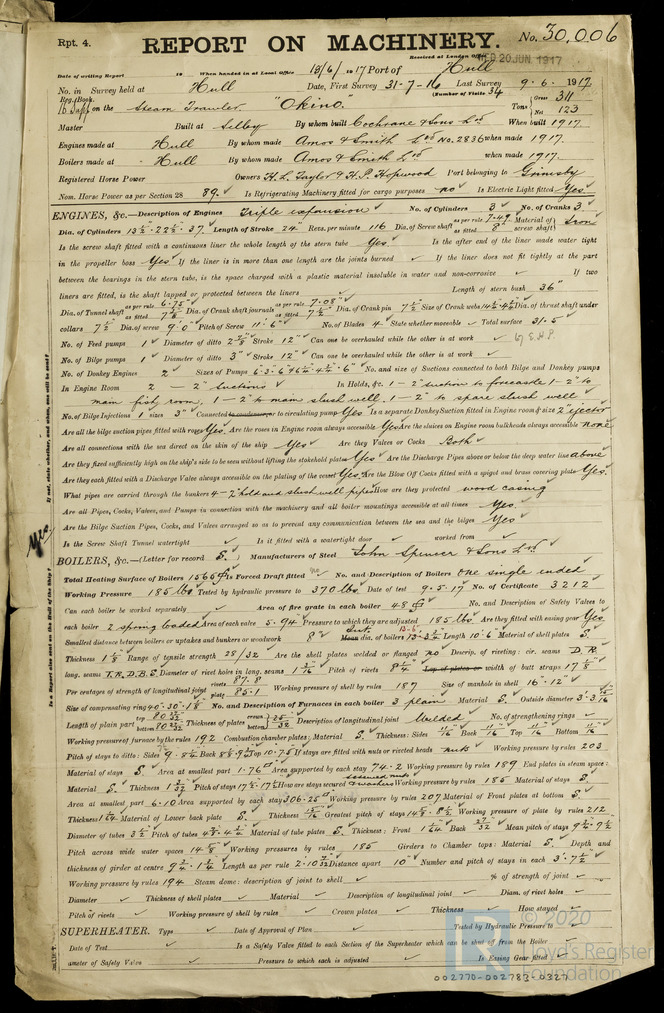 Rpt. 4.
REPORT ON MACHINERY. No. 30,006
Received at London Office WED 20 JUN 1917
Date of writing Report 19 When handed in at Local Office 18/6/1917 Port of Hull
No. in Survey held at Hull Date, First Survey 31-7-16 Last Survey 9-6-1917
Reg. Book. (Number of Visits 34
on the Steam Trawler "Okino" Tons Gross 311 Net 123
Master Built at Selby By whom built Cochrane & Sons Ld When built 1917
Engines made at Hull By whom made Amos & Smith Ld No. 2836 when made 1917.
Boilers made at Hull By whom made Amos & Smith Ld when made 1917.
Registered Horse Power Owners H. L. Taylor & H. P. Hopwood Port belonging to Grimsby
Nom. Horse Power as per Section 28 89. Is Refrigerating Machinery fitted for cargo purposes no Is Electric Light fitted Yes
ENGINES, &c.—Description of Engines Triple expansion No. of Cylinders 3 No. of Cranks 3
Dia. of Cylinders 13½-22½-37 Length of Stroke 24" Revs. per minute 116 Dia. of Screw shaft as per rule 7.49 as fitted 8" Material of screw shaft Iron
Is the screw shaft fitted with a continuous liner the whole length of the stern tube Yes. Is the after end of the liner made water tight
in the propeller boss Yes If the liner is in more than one length are the joints burned If the liner does not fit tightly at the part
between the bearings in the stern tube, is the space charged with a plastic material insoluble in water and non-corrosive If two
liners are fitted, is the shaft lapped or protected between the liners Length of stern bush 36"
Dia. of Tunnel shaft as per rule 6.75 as fitted Dia. of Crank shaft journals as per rule 7.08 as fitted 7½ Dia. of Crank pin 7½ Size of Crank webs Dia. of thrust shaft under
collars 7½ Dia. of screw 9'0" Pitch of Screw 11'6" No. of Blades 4 State whether moveable Total surface 31.5
No. of Feed pumps 1 Diameter of ditto 2⅞ Stroke 12" Can one be overhauled while the other is at work
No. of Bilge pumps 1 Diameter of ditto 3" Stroke 12" Can one be overhauled while the other is at work
No. of Donkey Engines 2 Sizes of Pumps No. and size of Suctions connected to both Bilge and Donkey pumps
In Engine Room 2 - 2" Suctions In Holds, &c. 1 - 2" suction to forecastle 1 - 2" to
main fish room, 1 - 2" to main slush well. 1 - 2" to spare slush well
No. of Bilge Injections 1 sizes 3" Connected to condenser, or to circulating pump Yes Is a separate Donkey Suction fitted in Engine room & size 2" ejector
Are all the bilge suction pipes fitted with roses Yes Are the roses in Engine room always accessible Yes Are the sluices on Engine room bulkheads always accessible none
Are all connections with the sea direct on the skin of the ship Yes Are they Valves or Cocks Both
Are they fixed sufficiently high on the ship's side to be seen without lifting the stokehold plates Yes Are the Discharge Pipes above or below the deep water line above
Are they each fitted with a Discharge Valve always accessible on the plating of the vessel Yes. Are the Blow Off Cocks fitted with a spigot and brass covering plate Yes.
What pipes are carried through the bunkers 4 - 2" hold and slush well pipes How are they protected wood casing
Are all Pipes, Cocks, Valves, and Pumps in connection with the machinery and all boiler mountings accessible at all times Yes.
Are the Bilge Suction Pipes, Cocks, and Valves arranged so as to prevent any communication between the sea and the bilges Yes
Is the Screw Shaft Tunnel watertight Is it fitted with a watertight door worked from
BOILERS, &c.—(Letter for record S.) Manufacturers of Steel John Spencer & Sons Ld
Total Heating Surface of Boilers 1565 Is Forced Draft fitted No. and Description of Boilers One single ended
Working Pressure 185 lbs Tested by hydraulic pressure to 370 lbs. Date of test 9.5.17 No. of Certificate 3212
Can each boiler be worked separately Area of fire grate in each boiler 48 No. and Description of Safety Valves to
each boiler 2 spring loaded Area of each valve 5.94 Pressure to which they are adjusted 185 lbs. Are they fitted with easing gear Yes
Smallest distance between boilers or uptakes and bunkers or woodwork 8" dia. of boilers Length 10'6 Material of shell plates S.
Thickness 1⅛ Range of tensile strength 28/32 Are the shell plates welded or flanged no Descrip. of riveting: cir. seams D.R.
long. seams T.R.D.B.S. Diameter of rivet holes in long. seams 1 3/16 Pitch of rivets 8¼ Lap of plates or width of butt straps 17⅞
Per centages of strength of longitudinal joint rivets 87.8 plate 85.1 Working pressure of shell by rules 187 Size of manhole in shell 16"·12"
Size of compensating ring 40·30·1⅛ No. and Description of Furnaces in each boiler 3 plain Material S. Outside diameter
Length of plain part top bottom Thickness of plates crown bottom 25/32 Description of longitudinal joint Welded No. of strengthening rings
Working pressure of furnace by the rules 192 Combustion chamber plates: Material S. Thickness: Sides 11/16 Back 11/16 Top 11/16 Bottom 11/16
Pitch of stays to ditto: Sides Back Top If stays are fitted with nuts or riveted heads nuts Working pressure by rules 203
Material of stays S. Area at smallest part 1.76 Area supported by each stay 74.2 Working pressure by rules 189 End plates in steam space:
Material S. Thickness 1 3/32 Pitch of stays How are stays secured Working pressure by rules 185 Material of stays S.
Area at smallest part 6.10 Area supported by each stay 306.25 Working pressure by rules 207 Material of Front plates at bottom S.
Thickness Material of Lower back plate S. Thickness Greatest pitch of stays Working pressure of plate by rules 212
Diameter of tubes 3½ Pitch of tubes Material of tube plates S. Thickness: Front Back 27/32 Mean pitch of stays
Pitch across wide water spaces 14⅝ Working pressures by rules 185 Girders to Chamber tops: Material S. Depth and
thickness of girder at centre Length as per rule Distance apart 10" Number and pitch of stays in each 3·7½
Working pressure by rules 194 Steam dome: description of joint to shell % of strength of joint
Diameter Thickness of shell plates Material Description of longitudinal joint Diam. of rivet holes
Pitch of rivets Working pressure of shell by rules Crown plates Thickness How stayed
SUPERHEATER. Type Date of Approval of Plan Tested by Hydraulic Pressure to
Date of Test Is a Safety Valve fitted to each Section of the Superheater which can be shut off from the Boiler
ameter of Safety Valve Pressure to which each is adjusted Is Easing Gear fitted
002770-002783-0327
If not, state whether, and when, one will be sent?
Is a Report also sent on the Hull of the Ship?
Yes
© 2020
Lloyd's Register
Foundation